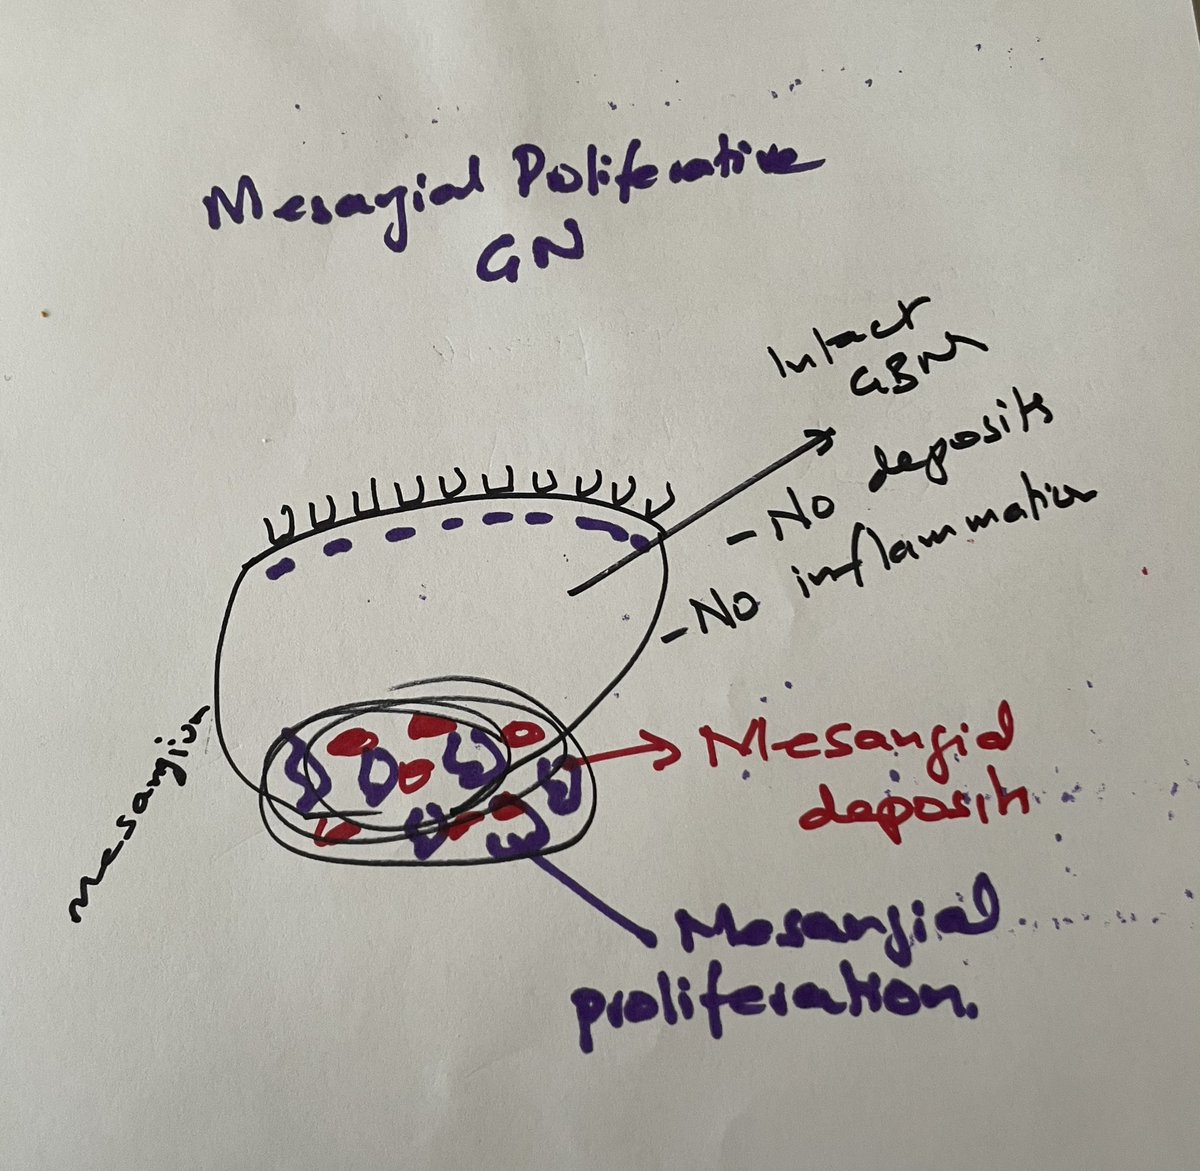 Mesangial Proliferative
GN
Intact
GBM
- No deposits
- No inflammation
mesangium
Mesangial
deposits
Mesangial
proliferation.